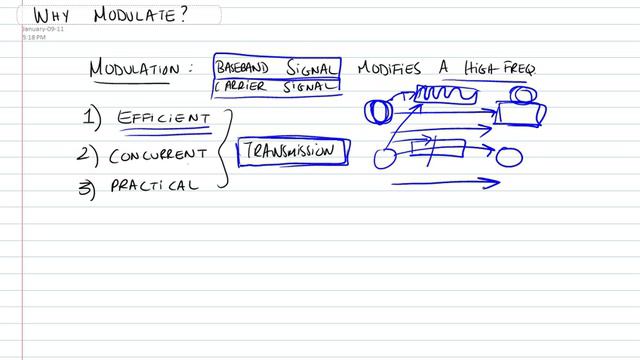 WHY MODULATE?
January-09-11
5:18 PM
MODULATION : BASEBAND SIGNAL MODIFIES A HIGH FREQ.
CARRIER SIGNAL
1) EFFICIENT
2) CONCURRENT
3) PRACTICAL
TRANSMISSION